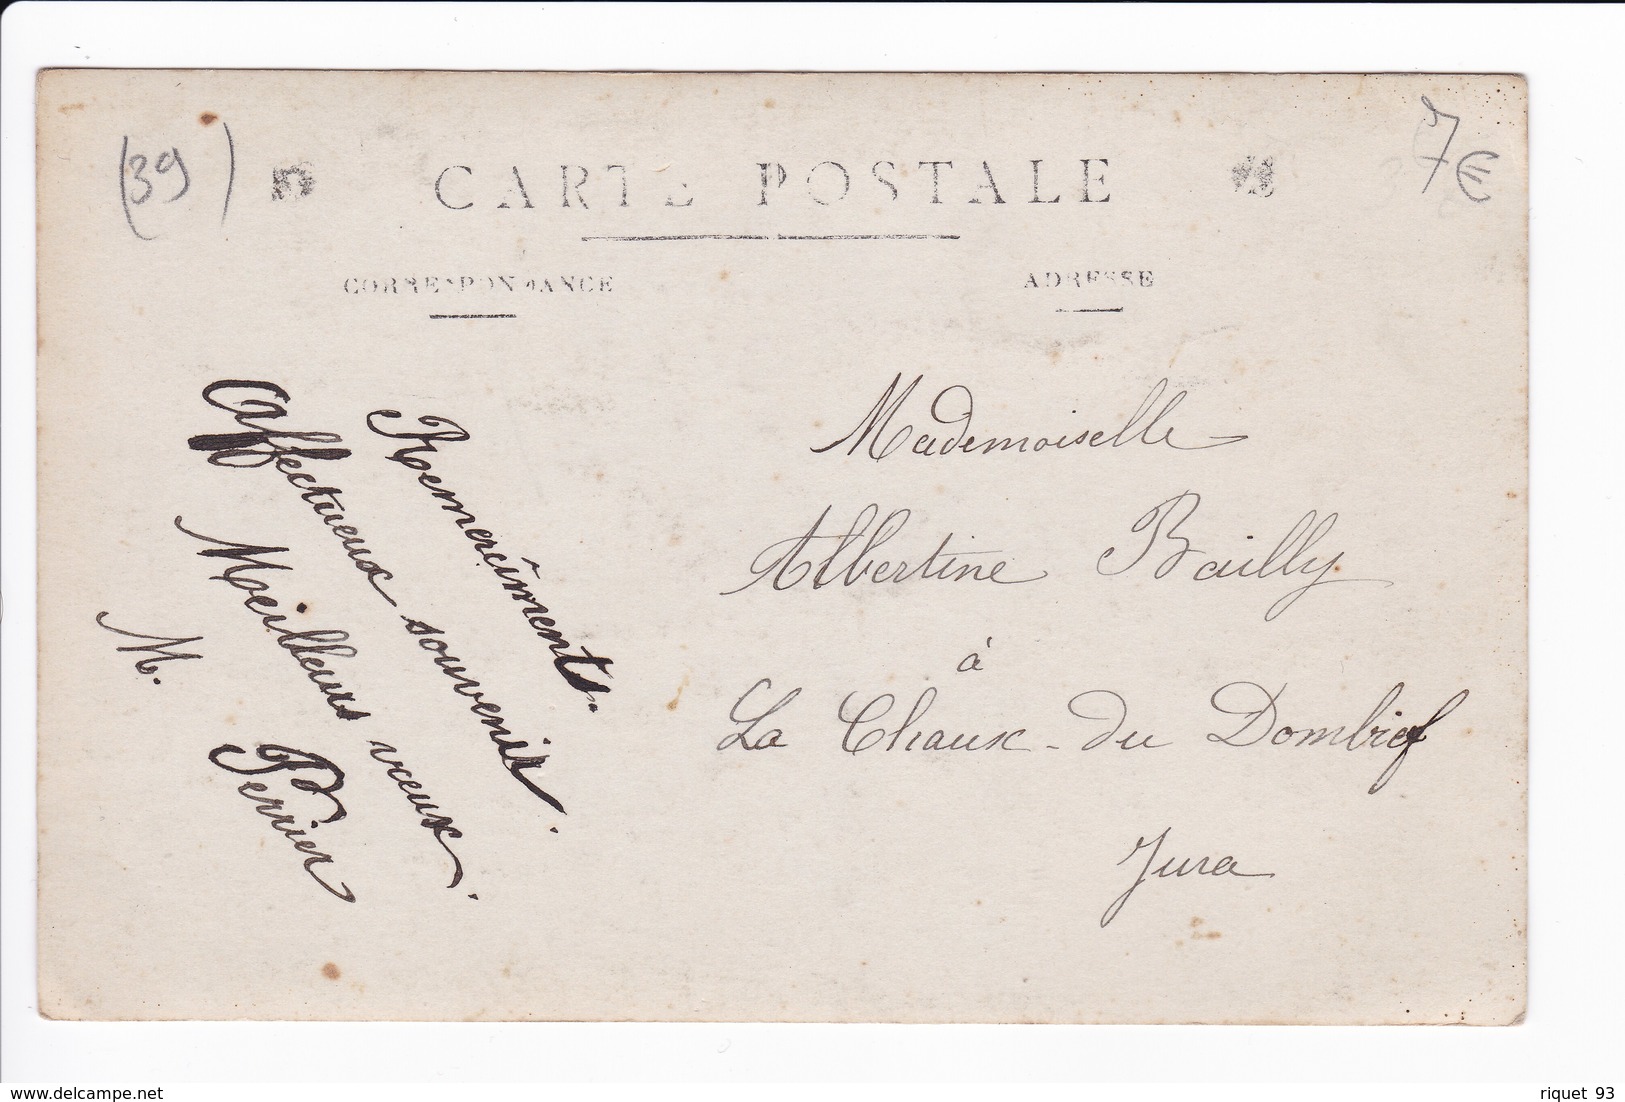 (39)
7€
CARTE POSTALE
CORRESPONDANCE
ADRESSE
Remercîments.
Affectueux souvenir.
Meilleurs vœux.
M. Perrier
Mademoiselle
Albertine Bailly
à
La Chaux-du Dombief
Jura
www.delcampe.net
riquet 93